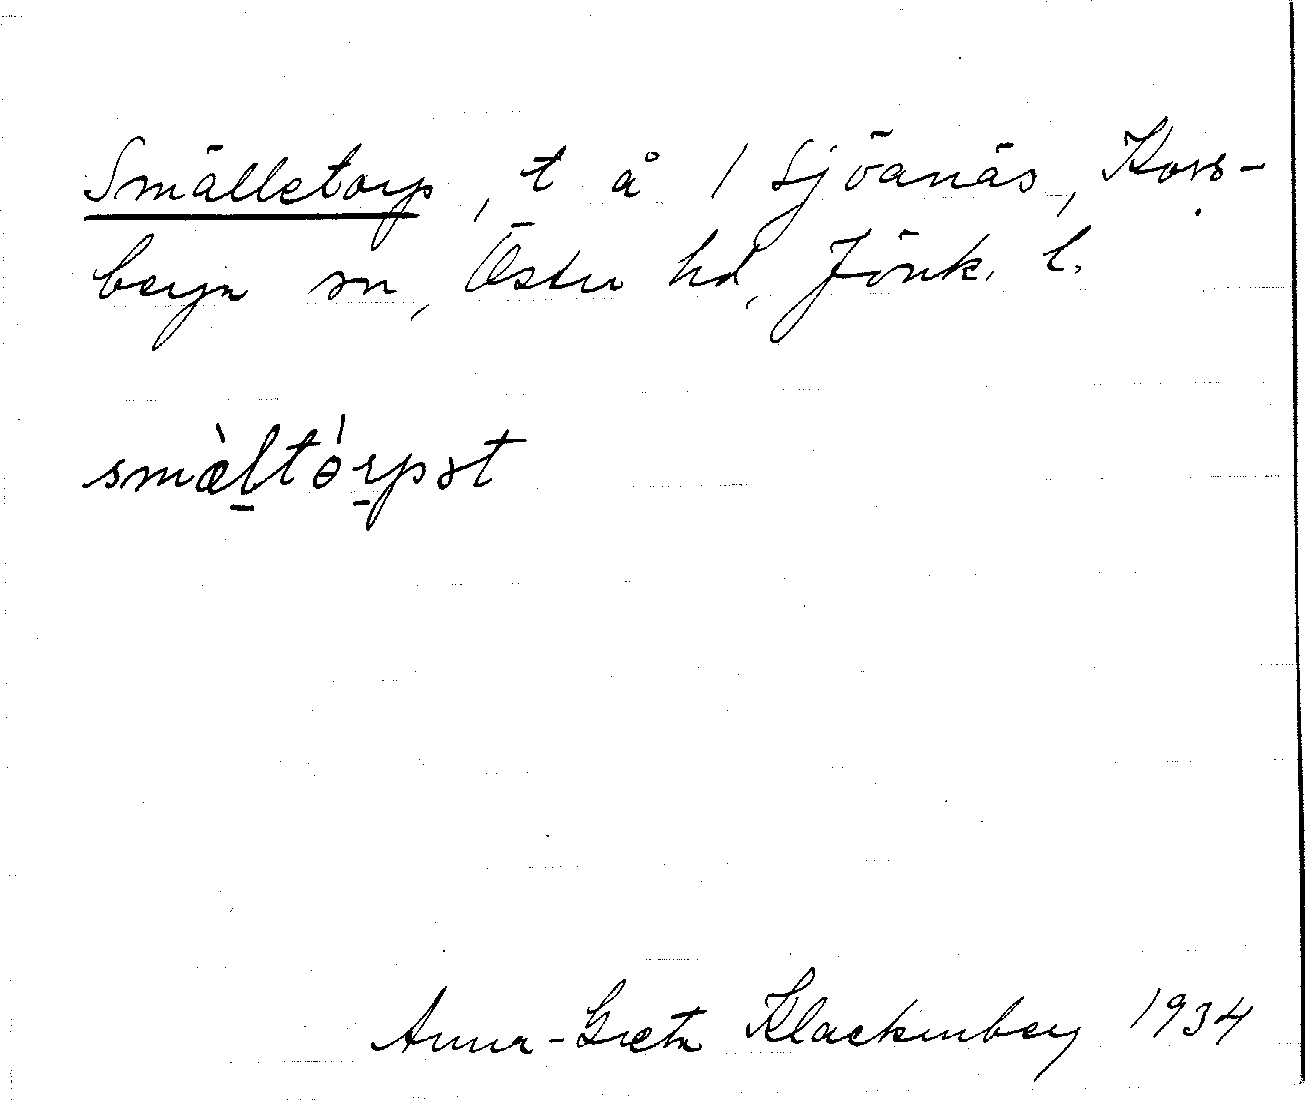 Smälletorp, t å 1 Sjöanäs, Kors-
berga sn, Östra hd, Jönk. l.
smæ̀l̠tɵ́r̠pət
Anna-Greta Klackenberg 1934